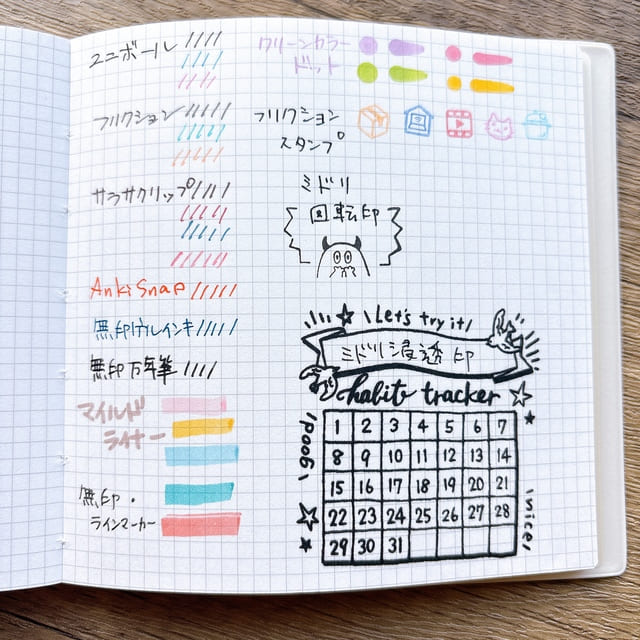 ユニボール
フリクション
サラサクリップ
Anki Snap
無印ゲルインキ
無印万年筆
マイルド
ライナー
無印・
ラインマーカー
クリーンカラー
ドット
フリクション
スタンプ
ミドリ
回転印
\Let's try it/
ミドリ浸透印
habits tracker
\good/
1 2 3 4 5 6 7
8 9 10 11 12 13 14
15 16 17 18 19 20 21
22 23 24 25 26 27 28
29 30 31
\nice/